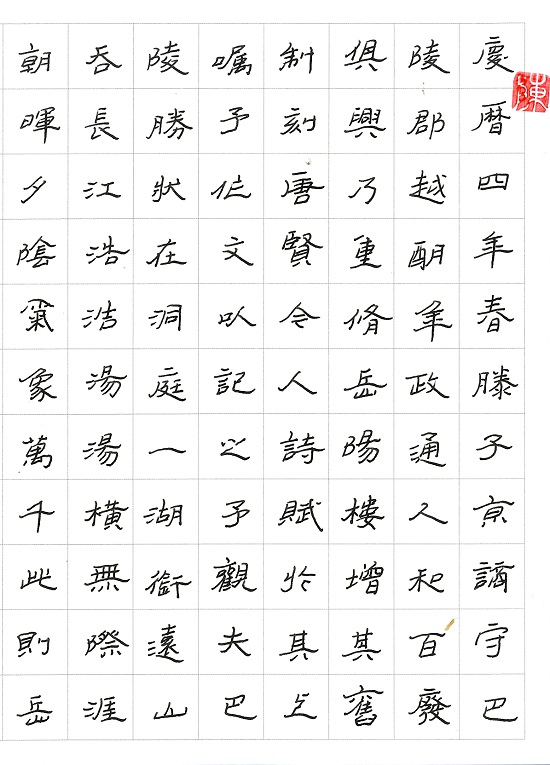 慶曆四年春滕子京謫守巴
陵郡越明年政通人和百廢
俱興乃重脩岳陽樓增其舊
制刻唐賢今人詩賦於其上
囑予作文以記之予觀夫巴
陵勝狀在洞庭一湖銜遠山
吞長江浩浩湯湯橫無際涯
朝暉夕陰氣象萬千此則岳
陳